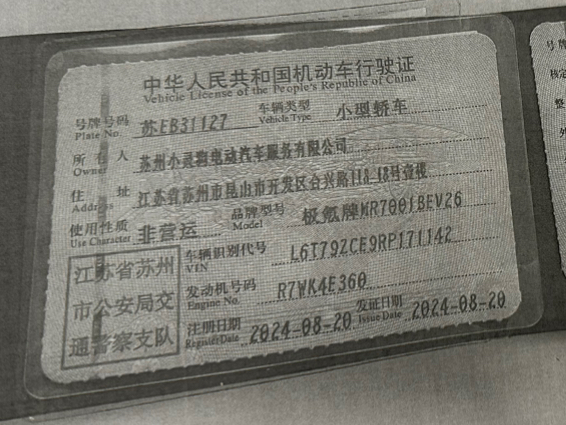 中华人民共和国机动车行驶证
Vehicle License of the People's Republic of China
号牌号码 苏EB31127 车辆类型 小型轿车
Plate No. Vehicle Type
所有人 苏州小灵狗电动汽车服务有限公司
Owner
住址 江苏省苏州市昆山市开发区合兴路118-18号壹楼
Address
使用性质 非营运 品牌型号 极氪牌MR7001BEV26
Use Character Model
江苏省苏州
市公安局交
通警察支队
车辆识别代号 L6T79ZCE9RP171142
VIN
发动机号码 R7WK4E360
Engine No.
注册日期 2024-08-20 发证日期 2024-08-20
Register Date Issue Date
号牌
核定
整
外